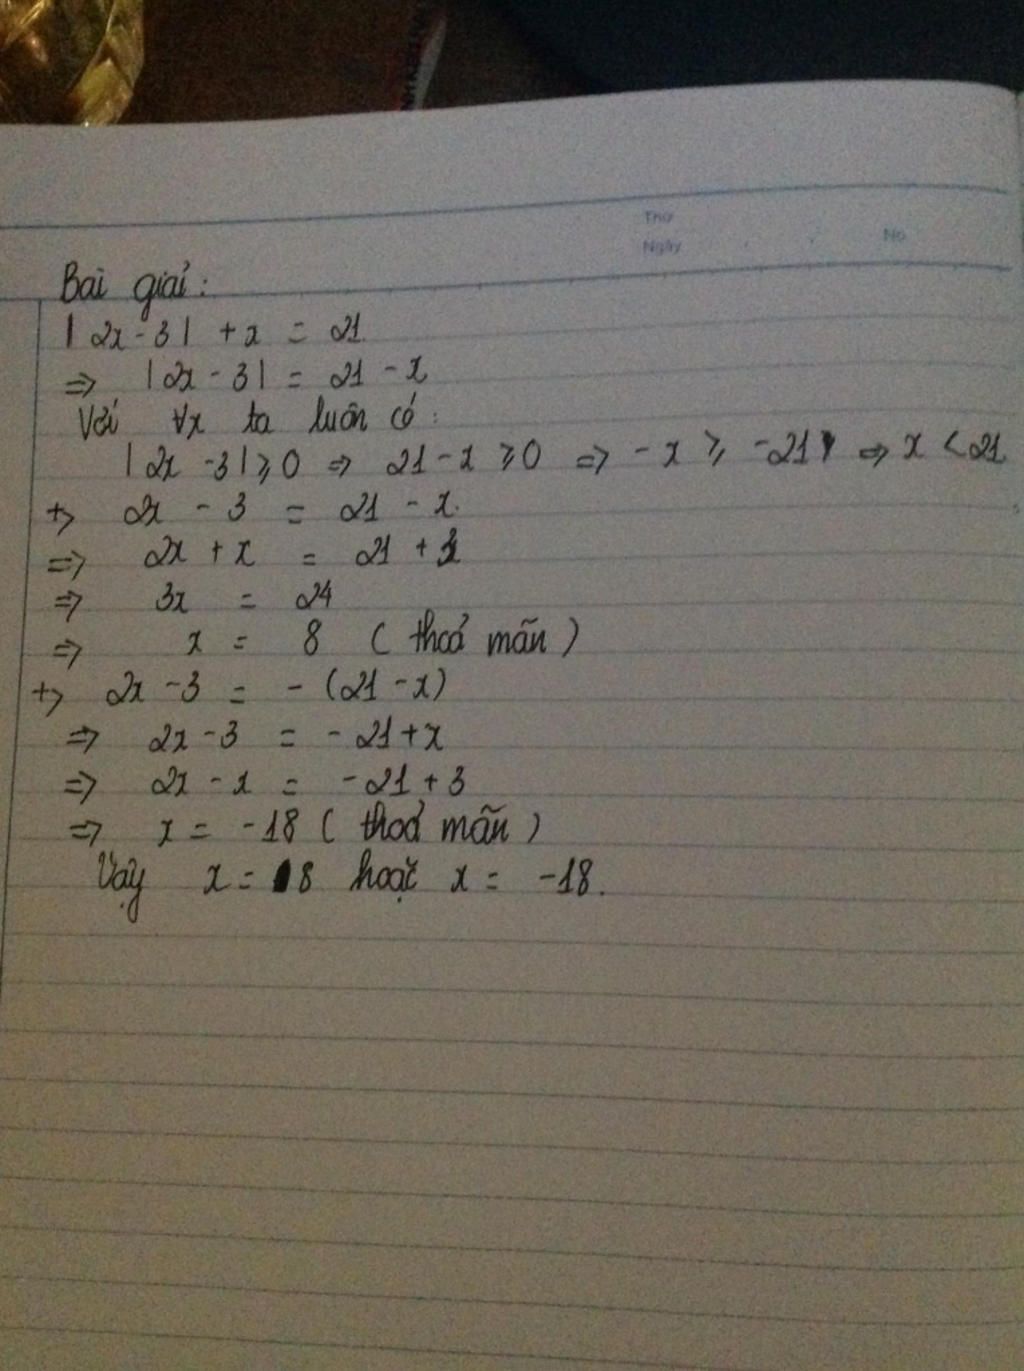 Thứ
Ngày No
Bài giải:
|2x - 3| + x = 21
=> |2x - 3| = 21 - x
Với ∀x ta luôn có:
|2x - 3| ⩾ 0 => 21 - x ⩾ 0 => - x ⩾ -21 => x < 21
+> 2x - 3 = 21 - x
=> 2x + x = 21 + 3
=> 3x = 24
=> x = 8 (thoả mãn)
+> 2x - 3 = - (21 - x)
=> 2x - 3 = - 21 + x
=> 2x - x = - 21 + 3
=> x = -18 (thoả mãn)
Vậy x = 8 hoặc x = -18.